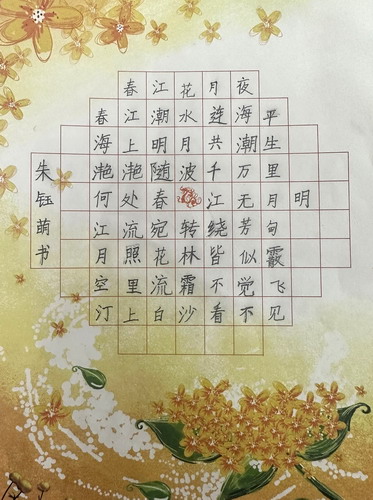 春江花月夜
春江潮水连海平
海上明月共潮生
滟滟随波千万里
何处春江无月明
江流宛转绕芳甸
月照花林皆似霰
空里流霜不觉飞
汀上白沙看不见
朱钰萌书